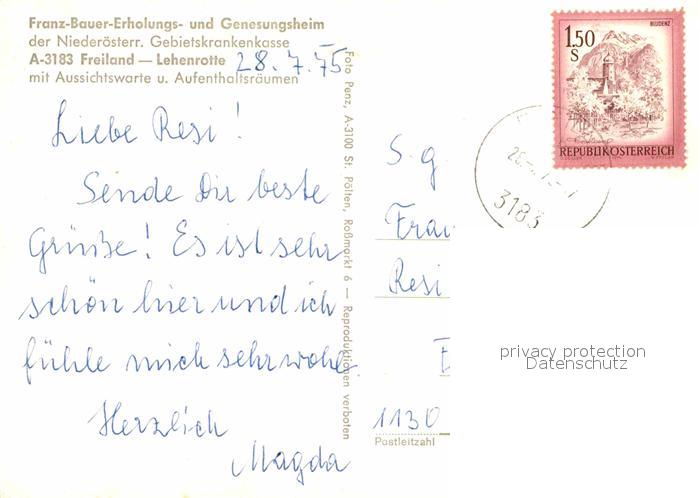 Franz-Bauer-Erholungs- und Genesungsheim
der Niederösterr. Gebietskrankenkasse
A-3183 Freiland — Lehenrotte 28.7.75
mit Aussichtswarte u. Aufenthaltsräumen
Liebe Resi!
Sende Dir beste
Grüße! Es ist sehr
schön hier und ich
fühle mich sehr wohl.
Herzlich
Magda
Foto Penz, A-3100 St. Pölten, Roßmarkt 6 — Reproduktionen verboten
BLUDENZ
1.50
S
REPUBLIK ÖSTERREICH
3183
S. g.
Frau
Resi
1130
Postleitzahl
privacy protection
Datenschutz